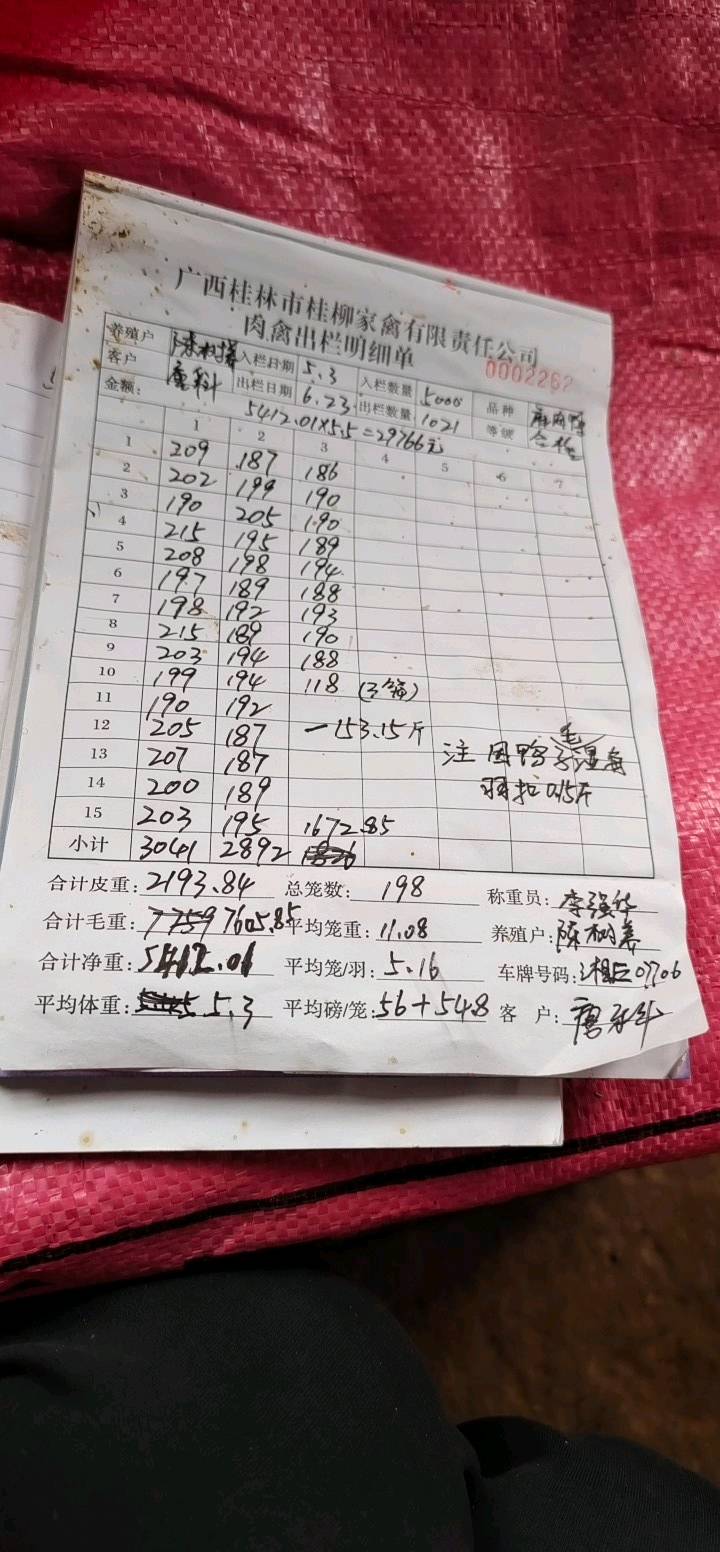 广西桂林市桂柳家禽有限责任公司
肉禽出栏明细单
0002262
养殖户 入栏日期 5.3 入栏数量 5000 品种 麻肉鸭
客户 唐科 出栏日期 6.23 出栏数量 1021 等级 合格
金额: 5412.01×5.5=29766元
1 2 3 4 5 6 7
1 209 187 186
2 202 199 190
3 190 205 190
4 215 195 189
5 208 198 194
6 197 189 188
7 198 192 193
8 215 189 190
9 203 194 188
10 199 194 118 (3笼)
11 190 192
12 205 187 -153.15斤
13 207 187 注 因鸭子毛湿每
14 200 189 羽扣0.15斤
15 203 195 1672.85
小计 3041 2892 1826
合计皮重: 2193.84 总笼数: 198 称重员: 李强华
合计毛重: 7759 7605.85 平均笼重: 11.08 养殖户:
合计净重: 5412.01 平均笼/羽: 5.16 车牌号码:
平均体重: 5.3 平均磅/笼: 56+548 客 户: